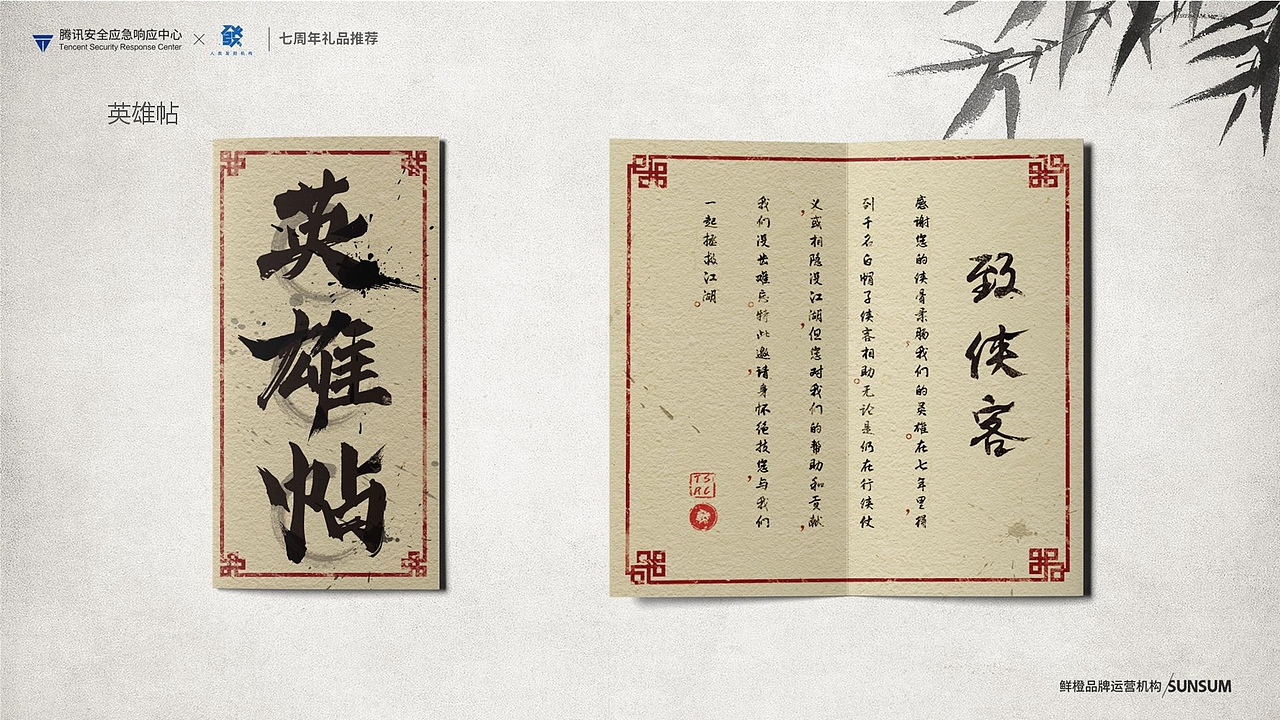 腾讯安全应急响应中心
Tencent Security Response Center
×
人类发射机构
七周年礼品推荐
英雄帖
英雄帖
致侠客
感谢您的侠骨柔肠，我们的英雄。在七年里，得
到千名白帽子侠客相助。无论是仍在行侠仗
义，或相隐没江湖，但您对我们的帮助和贡献，
我们没世难忘。特此邀请，身怀绝技您，与我们
一起拯救江湖。
TSRC
鲜橙品牌运营机构/SUNSUM